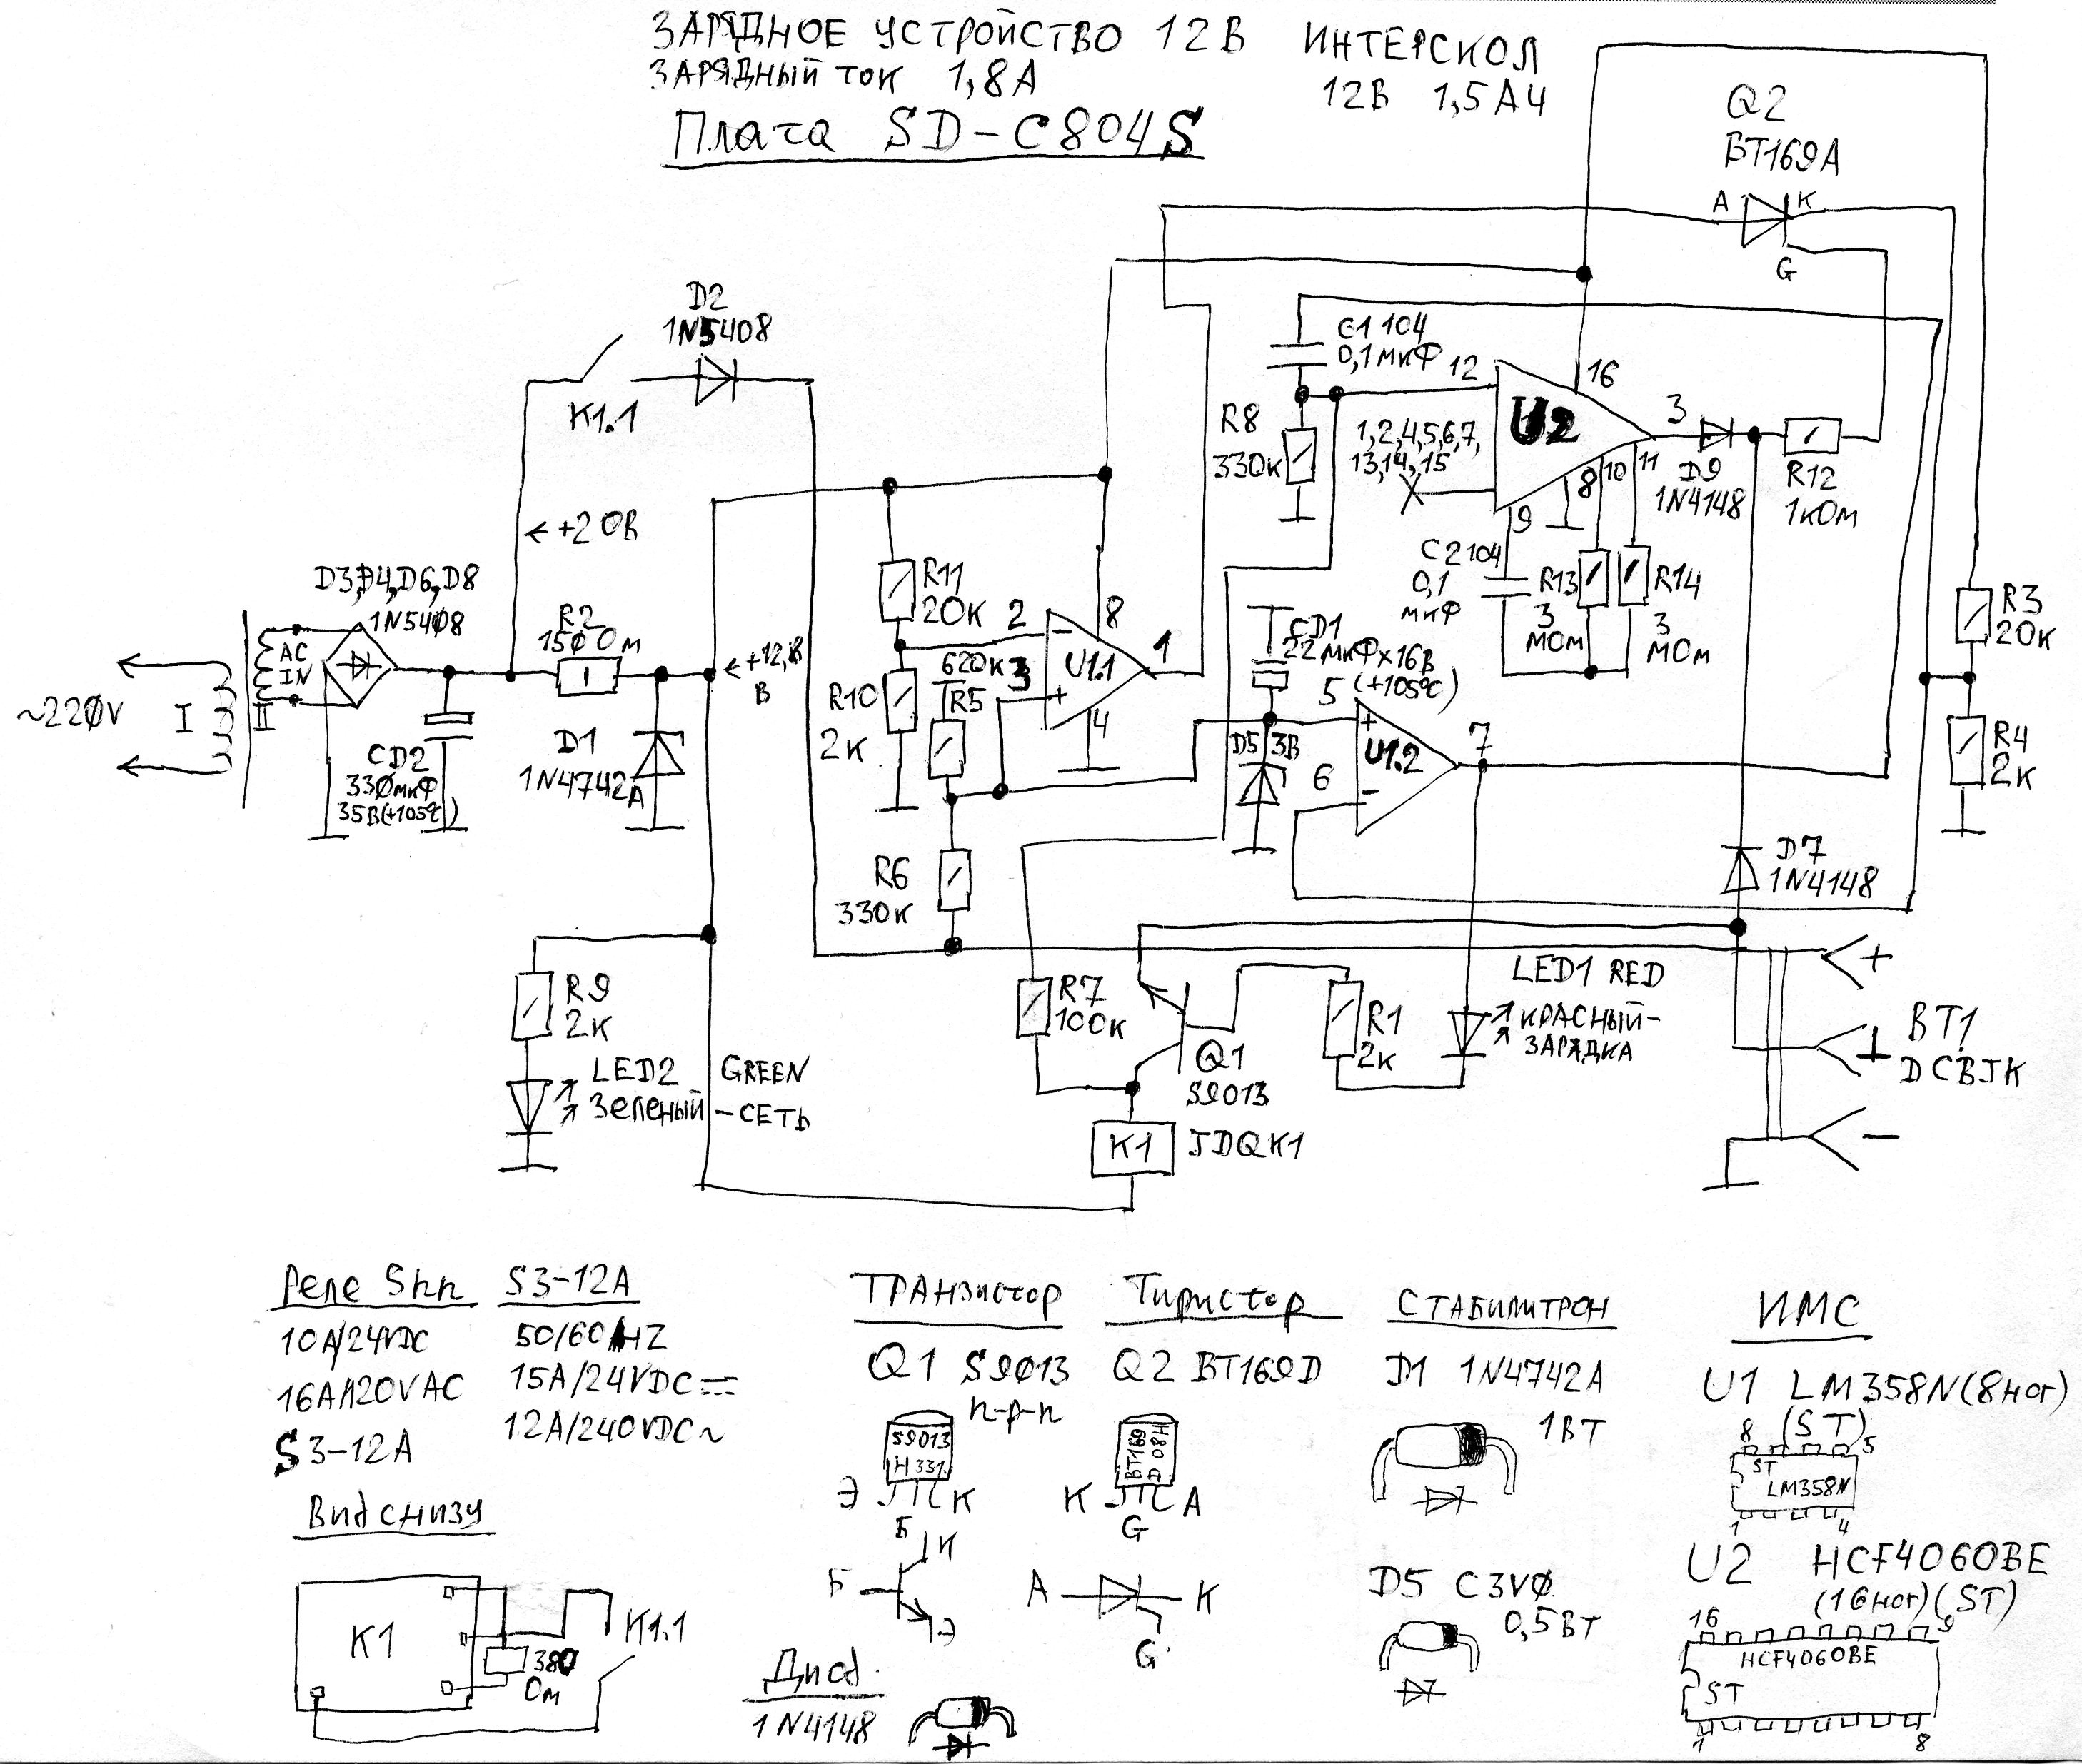 ЗАРЯДНОЕ УСТРОЙСТВО 12В ИНТЕРСКОЛ
ЗАРЯДНЫЙ ТОК 1,8А 12В 1,5АЧ
Плата SD-C804S
Q2
BT169A
A
K
G
D2
1N5408
K1.1
C1 104
0,1мкФ
12
16
U2
3
R8
330к
1,2,4,5,6,7,
13,14,15
8
10
11
9
D9
1N4148
R12
1кОм
←+20В
C2 104
0,1
мкФ
R13
3
МОм
R14
3
МОм
R3
20К
D3,D4,D6,D8
1N5408
R2
150Ом
←+12,8
В
R11
20К
2
8
620К
3
U1.1
1
CD1
22мкФх16В
(+105°С)
AC
IN
~220V
I
II
R10
2К
R5
4
5
D5
3В
U1.2
7
6
R4
2К
CD2
330мкФ
35В(+105°С)
D1
1N4742
A
R6
330К
D7
1N4148
R9
2К
LED2 GREEN
Зеленый -СЕТЬ
R7
100К
Q1
S9013
R1
2К
LED1 RED
КРАСНЫЙ-
ЗАРЯДКА
+
⊥
-
BT1
DCBJK
K1
JDQK1
Реле Shn S3-12A
10А/24VDC 50/60HZ
16A/120VAC 15A/24VDC
S3-12A 12A/240VDC~
Вид снизу
K1
380
Ом
K1.1
ТРАНзистор
Q1 S9013
n-p-n
S9013
H331
Э
К
Б
К
Б
Э
Тиристор
Q2 BT169D
BT169
D 08H
K
A
G
A
K
G
Диод
1N4148
СТАБИЛИТРОН
D1 1N4742A
1ВТ
D5 C3V0
0,5ВТ
ИМС
U1 LM358N(8ног)
(ST)
8
5
ST
LM358N
1
4
U2 HCF4060BE
(16ног)(ST)
16
9
HCF4060BE
ST
1
8